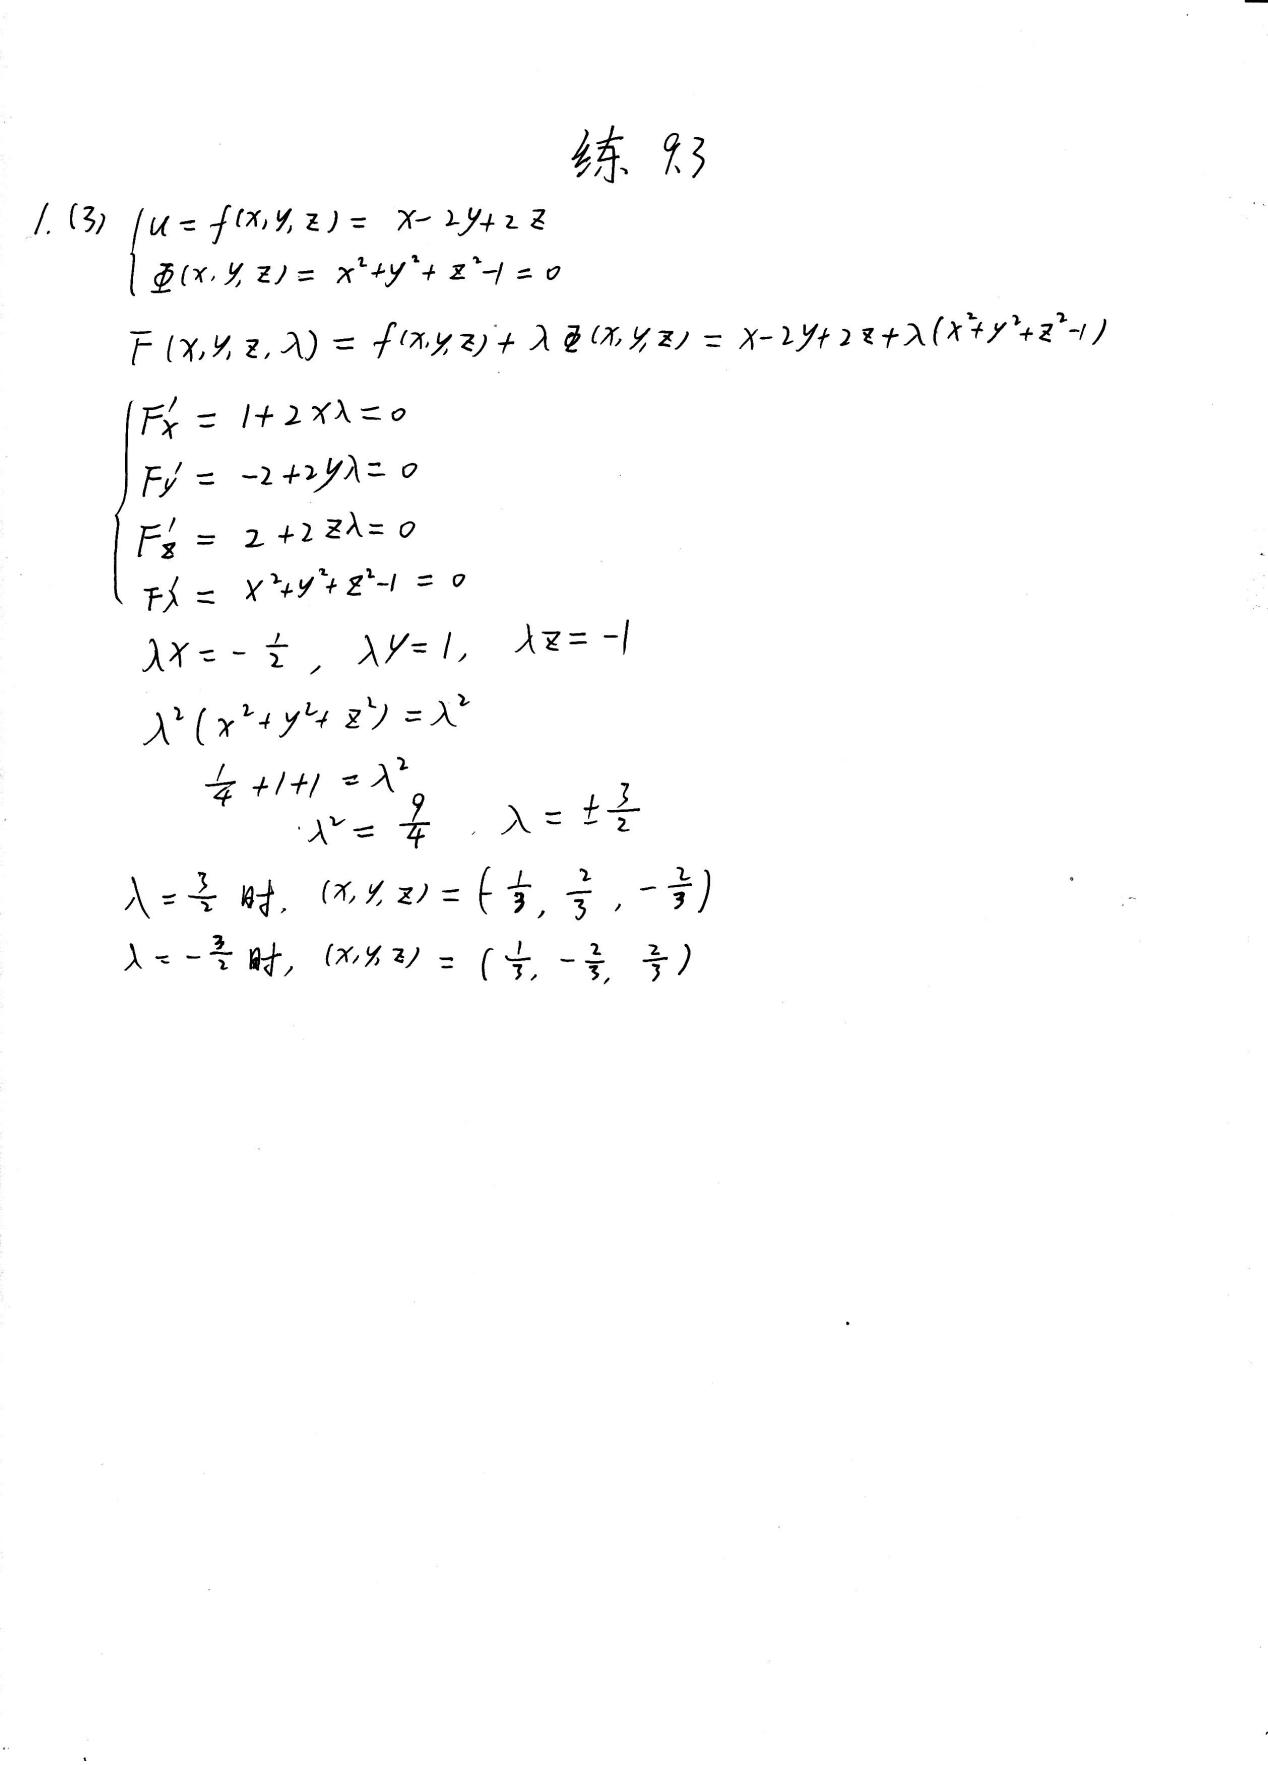 练 9.3
1. (3) { u = f(x, y, z) = x - 2y + 2z
Φ(x, y, z) = x² + y² + z² - 1 = 0
F(x, y, z, λ) = f(x, y, z) + λΦ(x, y, z) = x - 2y + 2z + λ(x² + y² + z² - 1)
{ F'x = 1 + 2xλ = 0
F'y = -2 + 2yλ = 0
F'z = 2 + 2zλ = 0
F'λ = x² + y² + z² - 1 = 0
λx = -1/2, λy = 1, λz = -1
λ²(x² + y² + z²) = λ²
1/4 + 1 + 1 = λ²
λ² = 9/4, λ = ±3/2
λ = 3/2 时, (x, y, z) = (-1/3, 2/3, -2/3)
λ = -3/2 时, (x, y, z) = (1/3, -2/3, 2/3)